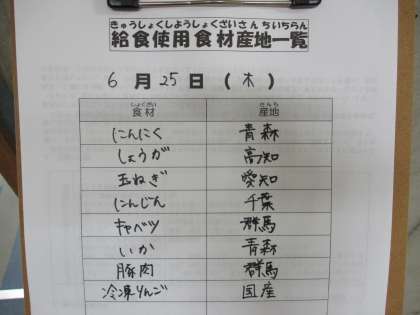 きゅうしょくしようしょくざいさんちいちらん
給食使用食材産地一覧
6月25日(木)
しょくざい さんち
食材 産地
にんにく 青森
しょうが 高知
玉ねぎ 愛知
にんじん 千葉
キャベツ 群馬
いか 青森
豚肉 群馬
冷凍りんご 国産